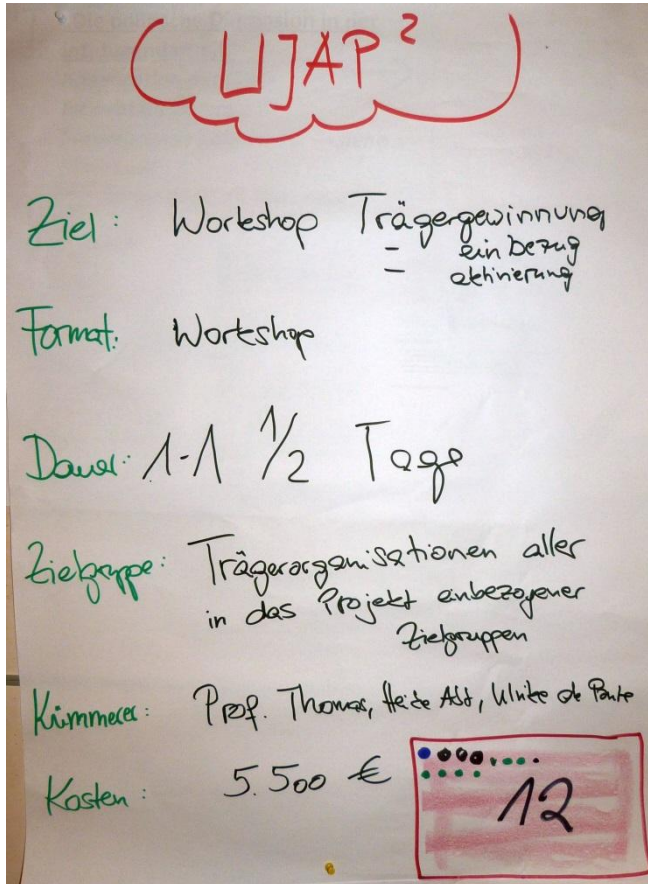 LIJAP²
Ziel: Workshop Trägergewinnung
- einbezug
- aktivierung
Format: Workshop
Dauer: 1-1 1/2 Tage
Zielgruppe: Trägerorganisationen aller
in das Projekt einbezogener
Zielgruppen
Kümmerer: Prof. Thomas, Heide Aßt, Ulrike de Ponte
Kosten: 5.500 €
12